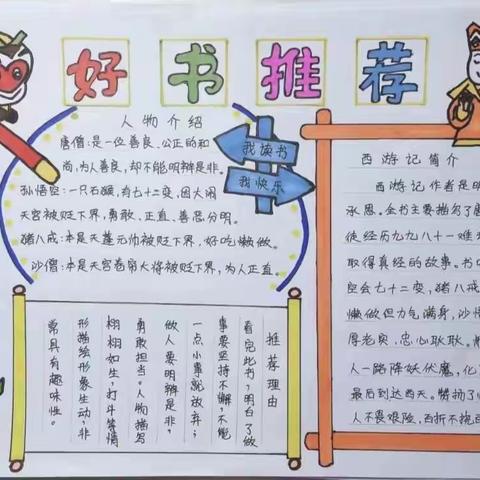 好书推荐
人物介绍
唐僧:是一位善良、公正的和
尚,为人善良,却不能明辨是非。
孙悟空:一只石猴,有七十二变,因大闹
天宫被贬下界,勇敢、正直、善恶分明。
猪八戒:本是天蓬元帅被贬下界,好吃懒做。
沙僧:本是天宫卷帘大将被贬下界,为人正直。
我读书
我快乐
推荐理由
看完此书,明白了做
事要坚持不懈,不能
一点小事就放弃;
做人要明辨是非,
勇敢担当。人物描写
栩栩如生,打斗等情
形描绘形象生动,非
常具有趣味性。
西游记简介
西游记作者是明
承恩。全书主要描写了唐
徒经历九九八十一难
取得真经的故事。书
空会七十二变,猪八戒
懒做但力气满身,沙
厚老实,忠心耿耿。
人一路降妖伏魔,化
最后到达西天。赞扬了
人不畏艰险,百折不挠